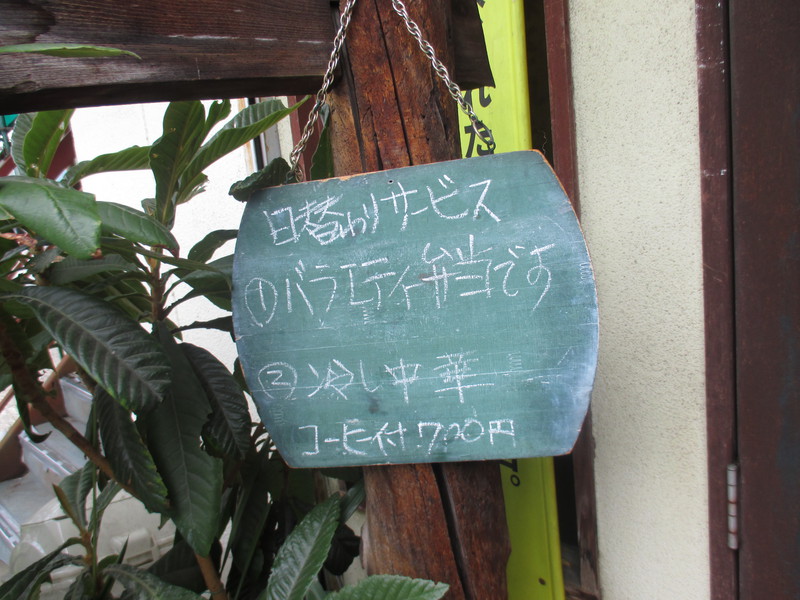 日替わりサービス
①バラエティ弁当です
②冷し中華
コーヒー付700円
れた